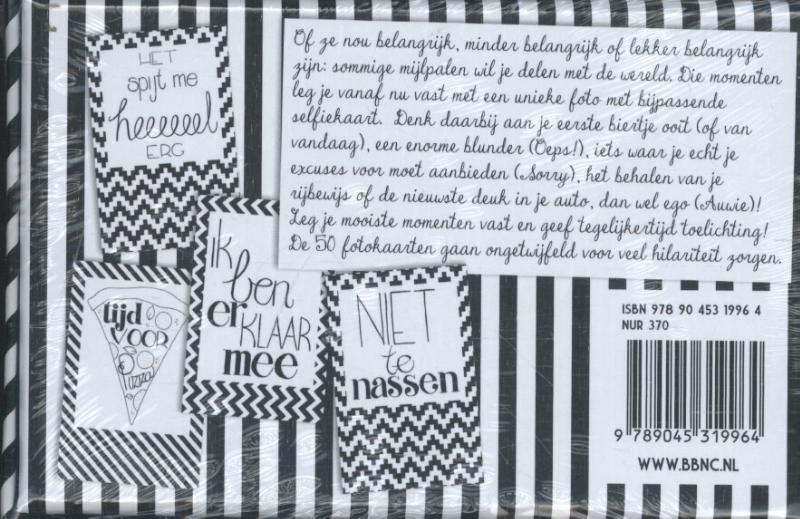 HET
spijt me
heeeeel
ERG
Of ze nou belangrijk, minder belangrijk of lekker belangrijk
zijn: sommige mijlpalen wil je delen met de wereld. Die momenten
leg je vanaf nu vast met een unieke foto met bijpassende
selfiekaart. Denk daarbij aan je eerste biertje ooit (of van
vandaag), een enorme blunder (Oeps!), iets waar je echt je
excuses voor moet aanbieden (Sorry), het behalen van je
rijbewijs of de nieuwste deuk in je auto, dan wel ego (Auwie)!
Leg je mooiste momenten vast en geef tegelijkertijd toelichting!
De 50 fotokaarten gaan ongetwijfeld voor veel hilariteit zorgen.
tijd
voor
IK
ben
er KLAAR
mee
NIET
te
nassen
ISBN 978 90 453 1996 4
NUR 370
9 789045 319964
WWW.BBNC.NL